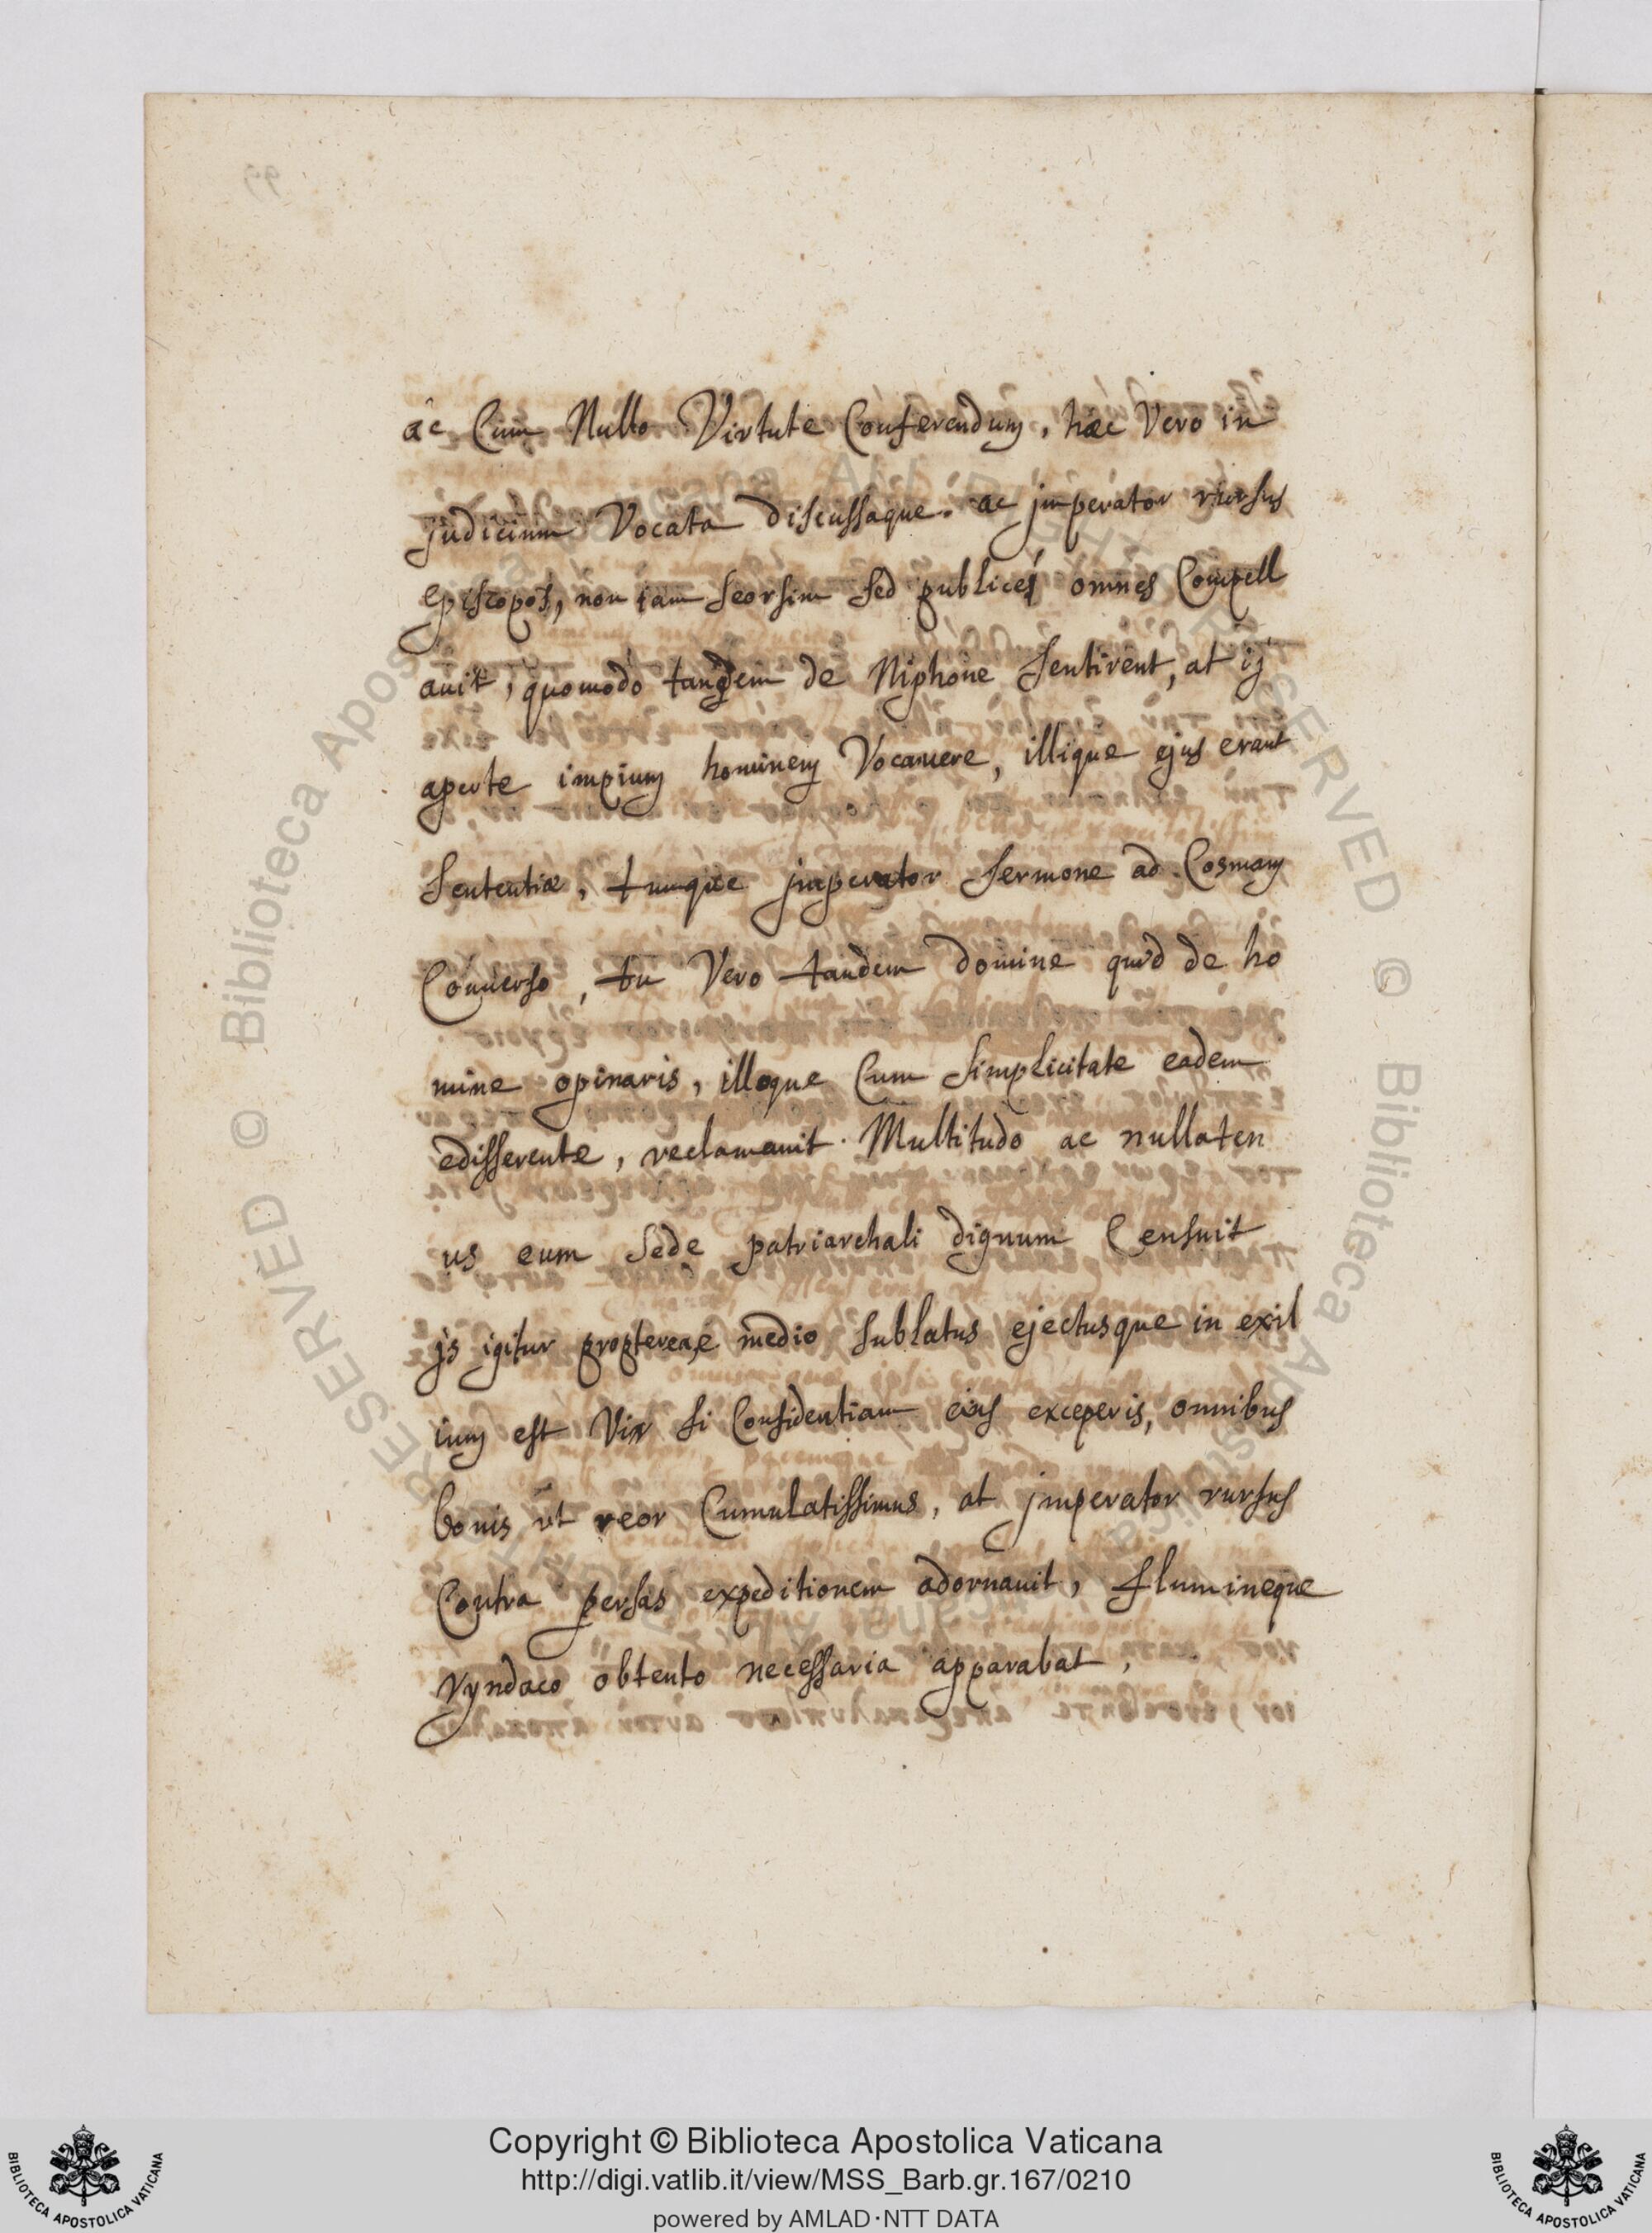 ac Cum Nullo Virtute Conferendum, hæc Vero in
judicium Vocata discussaque. ac jmperator rursus
episcopos, non iam seorsim sed publice omnes Compell
auit, quomodo tandem de Niphone sentirent, at ij
aperte impium hominem Vocauere, illique ejus erant
sententiæ, tumque jmperator sermone ad Cosmam
Conuerso, tu Vero tandem domine quid de ho
mine opinaris, illoque Cum simplicitate eadem
edisserente, reclamauit. Multitudo ac nullaten
us eum sede patriarchali dignum Censuit
js igitur propterea e medio sublatus ejectusque in exil
ium est Vir si Considentiam eius exceperis, omnibus
bonis ut reor Cumulatissimus, at jmperator rursus
Contra persas expeditionem adornauit, flumineque
ryndaco obtento necessaria apparabat,
Copyright © Biblioteca Apostolica Vaticana
http://digi.vatlib.it/view/MSS_Barb.gr.167/0210
powered by AMLAD·NTT DATA